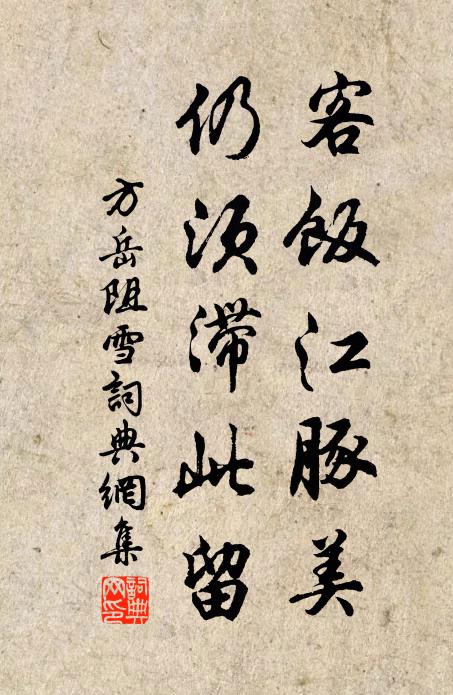 客飯江豚美
仍須滯此留
方岳阻雪詞典網集
詞典網印